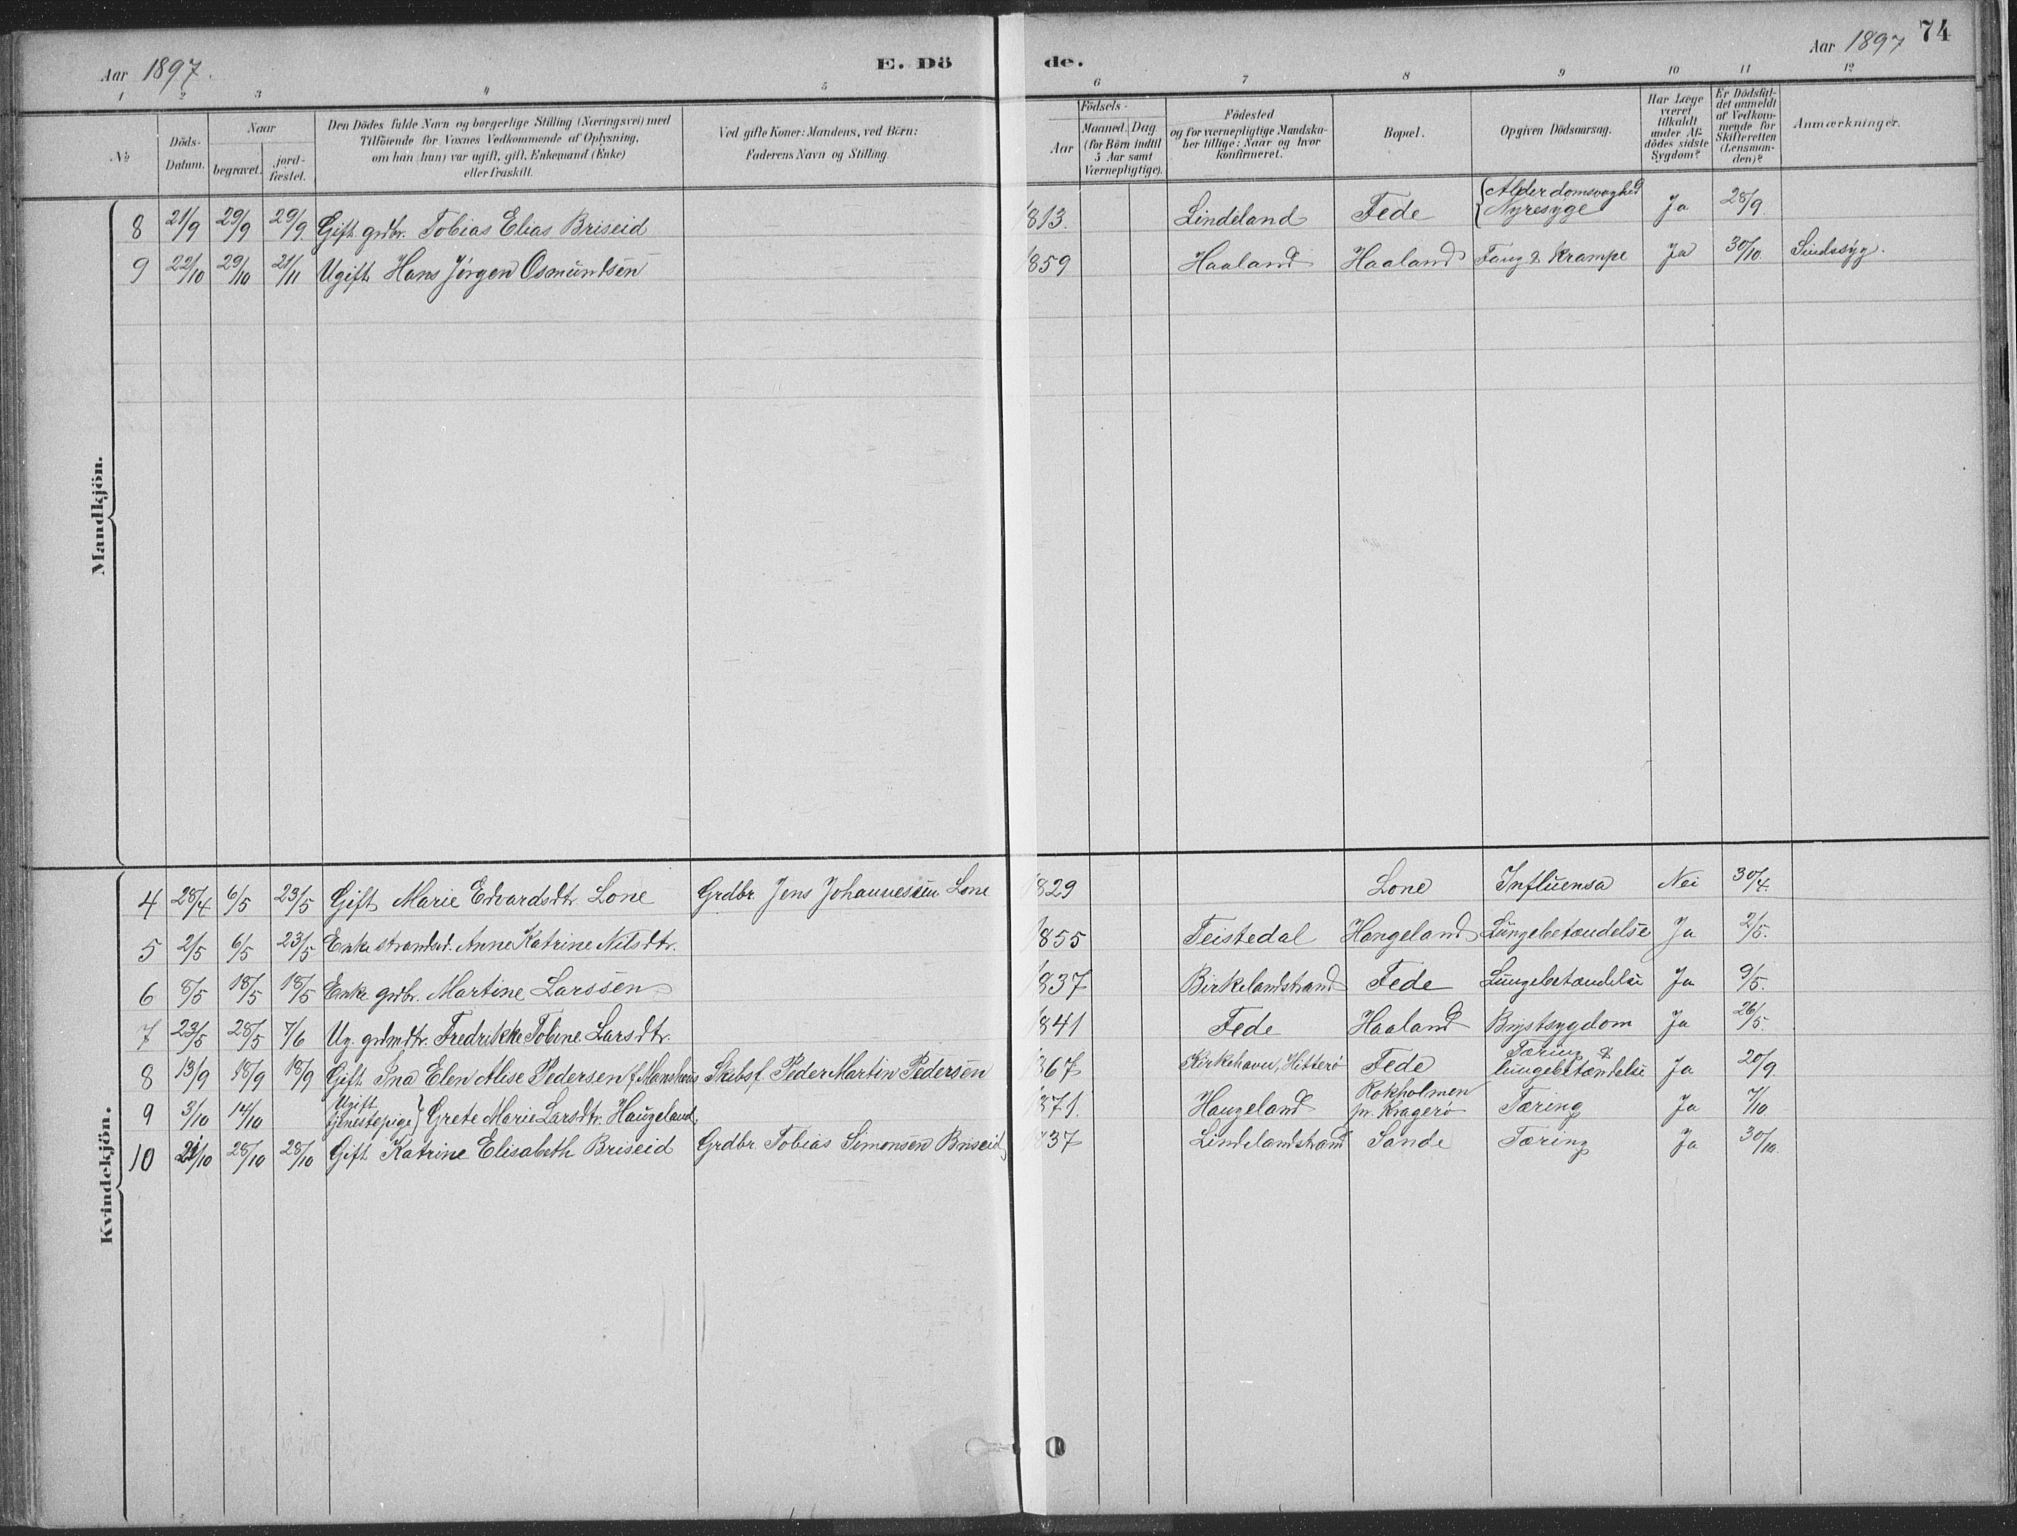 Aar 1897. E. Dö de. Aar 1897 74
1 2 3 4 5 6 7 8 9 10 11 12
№
Döds-Datum.
Naar
begravet.
jord-fæstet.
Den Dödes fulde Navn og borgerlige Stilling (Næringsvei) med
Tilföiende for Voxnes Vedkommende af Oplysning,
om han (hun) var ugift, gift, Enkemand (Enke)
eller fraskilt.
Ved gifte Koner: Mandens, ved Börn:
Faderens Navn og Stilling
Födsels-
Aar
Maaned. Dag
(for Börn indtil
5 Aar samt
Værnepligtige).
Födested
og for værnepligtige Mandska-
ber tillige: Naar og hvor
konfirmeret.
Bopæl.
Opgiven Dödsaarsag.
Har Læge
været
tilkaldt
under Af-
dödes sidste
Sygdom?
Er Dödsfal-
det anmeldt
af Vedkom-
mende for
Skifteretten
(Lensman-
den)?
Anmærkninger.
Mandkjön.
8 21/9 29/9 29/9. Gift grdbr. Tobias Elias Briseid 1813. Lindeland Fede {Alderdomsvaghed Nyresyge Ja 28/9.
9 22/10 29/10 21/11 Ugift Hans Jørgen Osmundsen 1859 Haaland Haaland & Krampe Ja 30/10. Sindssyg.
Kvindekjön.
4 28/4 6/5 23/5 Gift Marie Edvardsdtr Lone Grdbr. Jens Johannessen Lone 1829 Lone Influensa Nei 30/4.
5 2/5 6/5 23/5 Enke strandsd. Anne Katrine Nilsdtr. 1855 Feistedal Haugeland Lungebetændelse Ja 2/5.
6 8/5 18/5 18/5 Enke grdbr. Martine Larssen 1837 Birkelandstrand Fede Lungebetændelse Ja 9/5.
7 23/5 28/5 7/6 Ug. grdmdtr. Fredrikke Tobine Larsdtr. 1841 Fede Haaland Brystsygdom Ja 26/5.
8 13/9 18/9 18/9 Gift Ina Elen Alise Pedersen f. Monshaus Skibsf. Peder Martin Pedersen 1867 Kirkehavn, Hitterø Fede Tæring & lungebetændelse Ja 20/9
9 3/10 14/10 Ugift tjenestepige} Grete Marie Larsdtr. Haugeland 1871. Haugeland Rokholmen pr. Kragerø Tæring Ja 7/10
10 21/10 28/10 28/10 Gift Katrine Elisabeth Briseid Grdbr. Tobias Simonsen Briseid 1837 Lindelandstrand Sande Tæring Ja 30/10.